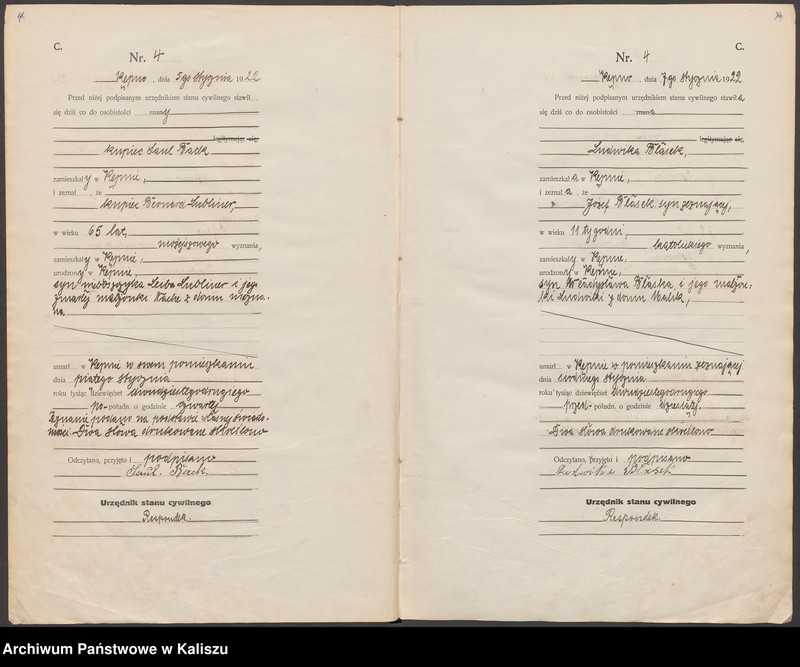 4
C.
Nr. 4
Kępno, dnia 5go Stycznia 1922
Przed niżej podpisanym urzędnikiem stanu cywilnego stawił
się dziś co do osobistości znany
legitymując się,
kupiec Saul Back
zamieszkały w Kępnie,
i zeznał, że
kupiec Bernard Lubliner,
w wieku 65 lat,
mojżeszowego wyznania,
zamieszkały w Kępnie,
urodzony w Kępnie,
syn Leiba Lubliner i jego
zmarłej małżonki z domu niezna-
na
umarł w Kępnie w swem pomieszkaniu
dnia piątego Stycznia
roku tysiąc dziewięćset dwudziestegodrugiego
po- połudn. o godzinie czwartej
Zeznanie podano na podstawie własnej świado-
mości. Dwa słowa drukowane skreślono
Odczytano, przyjęto i podpisano
Saul. Back.
Urzędnik stanu cywilnego
Respondek.
C.
Nr. 4
Kępno, dnia 7go Stycznia 1922
Przed niżej podpisanym urzędnikiem stanu cywilnego stawiła
się dziś co do osobistości znana
legitymując się,
Ludwika Błasek,
zamieszkała w Kępnie,
i zeznała, że
Józef Błasek syn zeznającej,
w wieku 11 tygodni,
katolickiego wyznania,
zamieszkały w Kępnie,
urodzony w Kępnie,
syn Władysława Błaska i jego małżon-
ki Ludwiki z domu Malik,
umarł w Kępnie w pomieszkaniu zeznającej
dnia siódmego Stycznia
roku tysiąc dziewięćset dwudziestegodrugiego
przed- połudn. o godzinie
Dwa słowa drukowane skreślono
Odczytano, przyjęto i podpisano
Ludwika Błasek
Urzędnik stanu cywilnego
Respondek.
Archiwum Państwowe w Kaliszu